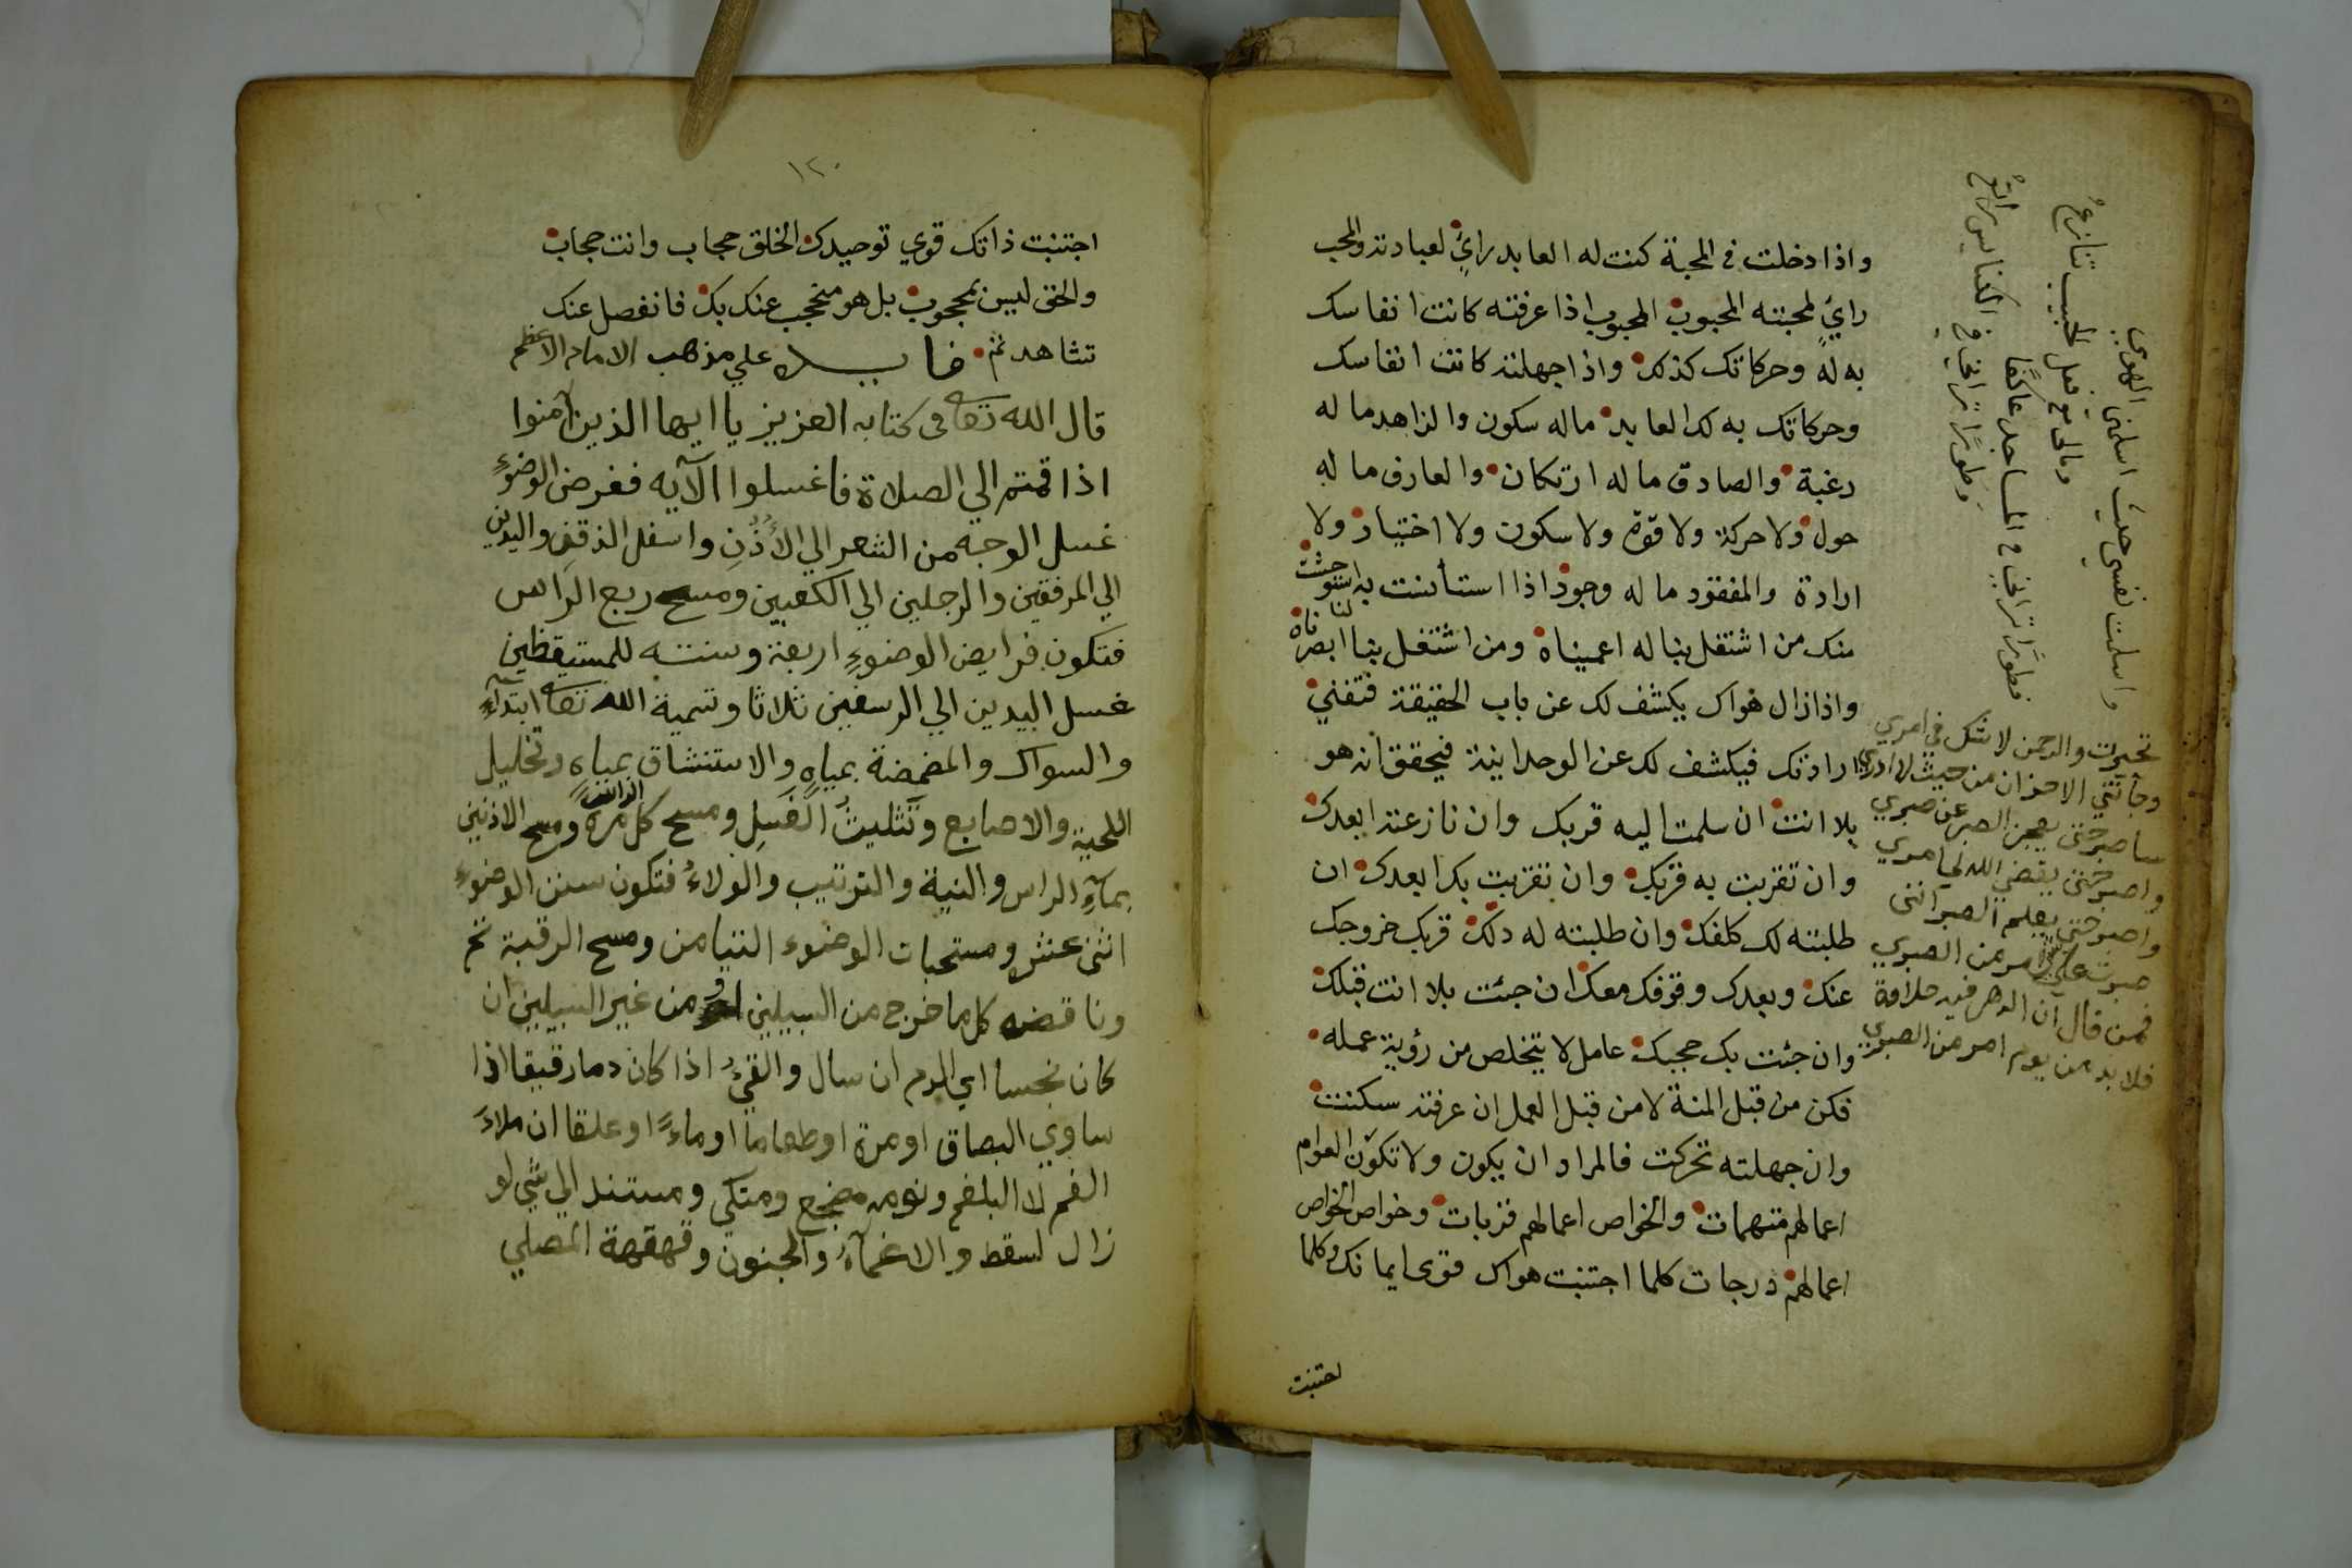 واذا دخلت في المحبة كنت له العابد راي لعبادته والمحب
راي لمحبته المحبوب المحبوب اذا عرفته كانت انفاسك
به له وحركاتك كذلك واذا جهلته كانت انفاسك
وحركاتك به لك العابد ماله سكون والزاهد ما له
رغبة والصادق ما له ارتكان والعارف ما له
حول ولا حركة ولا قوة ولا سكون ولا اختيار ولا
ارادة والمفقود ما له وجود اذا استأنست به استوحشت
منك من اشتغل بنا له اعميناه ومن اشتغل بنا لنا ابصرناه
واذا زال هواك يكشف لك عن باب الحقيقة فتفني
ارادتك فيكشف لك عن الوحدانية فيحقق انه هو
بلا انت ان سلمت اليه قربك وان نازعته ابعدك
وان تقربت به قربك وان تقربت بك ابعدك ان
طلبته لك كلفك وان طلبته له دلك قربك خروجك
عنك وبعدك وقوفك معك ان جئت بلا انت قبلك
وان جئت بك حجبك عامل لا يتخلص من رؤية عمله
فكن من قبل المنة لا من قبل العمل ان عرفته سكنت
وان جهلته تحركت فالمراد ان يكون ولا تكون العوام
اعمالهم متهمات والخواص اعمالهم قربات وخواص الخواص
اعمالهم درجات كلما اجتنبت هواك قوي ايمانك وكلما
اجتنبت
واسلمت نفسي حيث اسلمني الهوي
ومالي مع فعل الحبيب تنازع
فطورا تراني في المساجد عاكفا
وطورا تراني في الكنايس راتع
تحيرت والرحمن لا شك في امري
وجآتني الاحزان من حيث لا ادري
ساصبر حتى يعجز الصبر عن صبري
واصبر حتى يقضي الله لي امري
واصبر حتى يعلم الصبر انني
صبرت علي شي امر من الصبري
فمن قال ان الدهر فيه حلاوة
فلا بد من يوم امر من الصبري
١٢٠
اجتنبت ذاتك قوي توحيدك الخلق حجاب وانت حجاب
والحق ليس بمحجوب بل هو منحجب عنك بك فانفصل عنك
تشاهد تم فايده علي مذهب الامام الاعظم
قال الله تعالى في كتابه العزيز يا ايها الذين آمنوا
اذا قمتم الي الصلاة فاغسلوا الآيه ففرض الوضوء
غسل الوجه من الشعر الي الأذن واسفل الذقن واليدين
الي المرفقين والرجلين الي الكعبين ومسح ربع الراس
فتكون فرايض الوضوء اربعة وسنته للمستيقظين
غسل اليدين الي الرسغين ثلاثا وتسمية الله تعالى ابتدآء
والسواك والمضمضة بمياه والاستنشاق بمياه وتخليل
اللحية والاصابع وتثليث الغسل ومسح كل الراس مرة ومسح الاذنين
بمآء الراس والنية والترتيب والولاء فتكون سنن الوضوء
اثنى عشر ومستحبات الوضوء التيامن ومسح الرقبة تم
وناقضه كل ما خرج من السبيلين او من غير السبيلين ان
كان نجسا اي الدم ان سال والقئ اذا كان دما رقيقا اذا
ساوي البصاق او مرة او طعاما او ماء او علقا ان ملاء
الفم لا البلغم ونومه مضجع ومتكي ومستند الي شي لو
زال لسقط والاغمآء والجنون وقهقهة المصلي